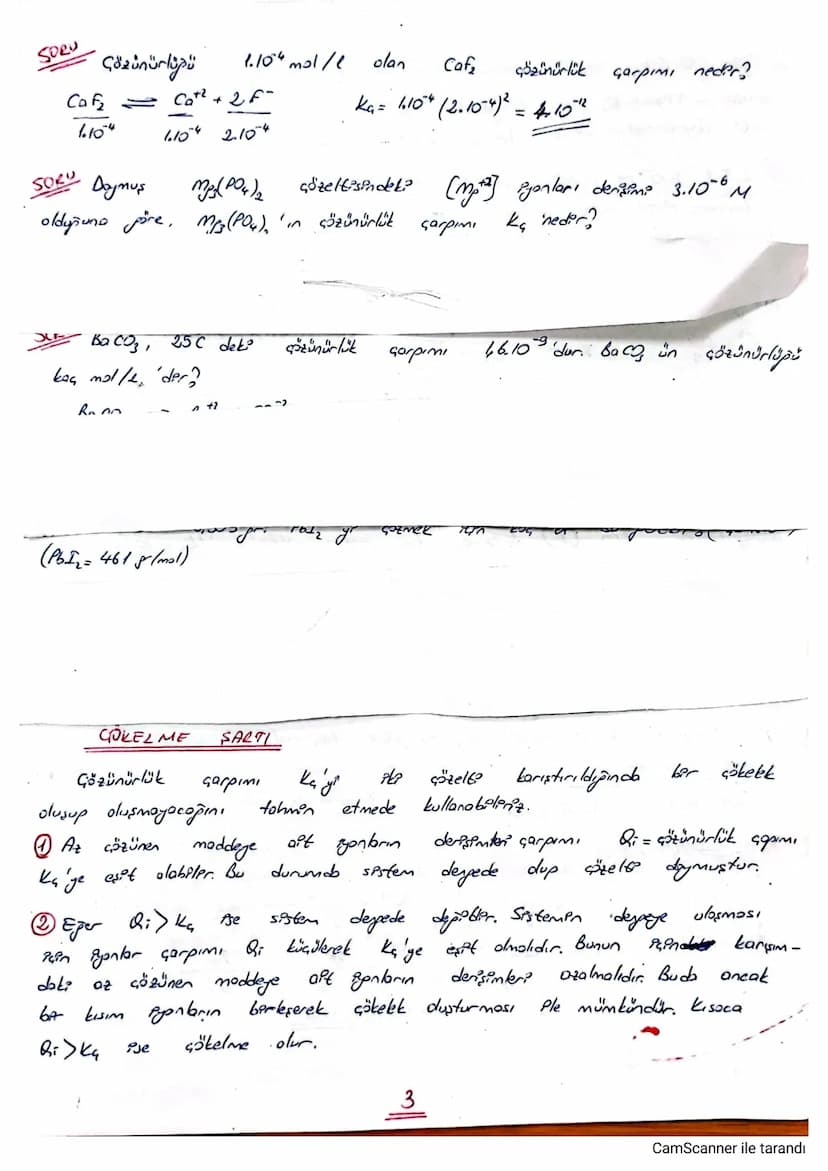 SORU Çözünürlüğü 1.10⁻⁴ mol/l olan CaF₂ çözünürlük çarpımı nedir?
CaF₂ ⇌ Ca⁺² + 2F⁻ Kç = 1.10⁻⁴ (2.10⁻⁴)² = 4.10⁻¹²
1.10⁻⁴ 1.10⁻⁴ 2.10⁻⁴
SORU Doymuş Mg₃(PO₄)₂ çözeltisindeki [Mg⁺²] iyonları derişimi 3.10⁻⁶ M
olduğuna göre, Mg₃(PO₄)₂'ın çözünürlük çarpımı Kç nedir?
BaCO₃, 25C deki çözünürlük çarpımı 1,6.10⁻⁹'dur. BaCO₃ ün çözünürlüğü
kaç mol/l, 'dir?
(PbI₂ = 461 gr/mol)
ÇÖKELME ŞARTI
Çözünürlük çarpımı Kç'yi iki çözelti karıştırıldığında bir çökelek
oluşup oluşmayacağını tahmin etmede kullanabiliriz.
① Az çözünen maddeye ait iyonların derişimleri çarpımı Qi = çözünürlük çapımı
Kç'ye eşit olabilir. Bu durumda sistem dengede olup çözelti doymuştur.
② Eğer Qi > Kç ise sistem dengede değildir. Sistemin dengeye ulaşması
için iyonlar çarpımı Qi küçülerek Kç'ye eşit olmalıdır. Bunun için karışım-
daki az çözünen maddeye ait iyonların derişimleri azalmalıdır. Buda ancak
bir kısım iyonların birleşerek çökelek oluşturması ile mümkündür. Kısaca
Qi > Kç ise çökelme olur.
3
CamScanner ile tarandı